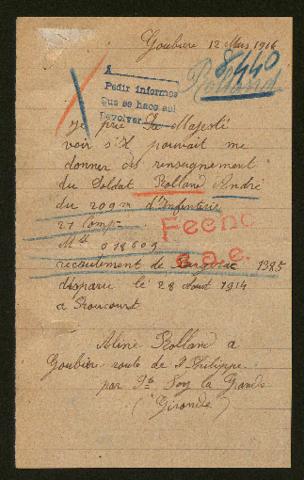 Goubière 12 Mars 1916
8440
Rolland
A
Pedir informes
que se hace así
Devolver
Je prie Sa Majesté
voir s'il pouvait me
donner des renseignement
du Soldat Rolland André
du 209m d'Infenterie
27 Comp
Mle 018609
Feeho
e.a.e.
recrutement de 1325
disparu le 28 Aout 1914
a
Aline Rolland a
Goubière route de St Philippe
par Ste Foy la Grande
(Gironde)